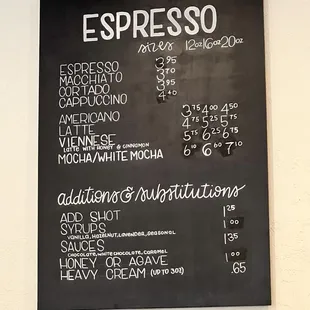 ESPRESSO
sizes 12oz 16oz 20oz
ESPRESSO 3.95
MACCHIATO 3.70
CORTADO 3.95
CAPPUCCINO 4.40
AMERICANO 3.75 4.00 4.50
LATTE 4.75 5.25 5.75
VIENNESE 5.75 6.25 6.75
LATTE WITH HONEY & CINNAMON
MOCHA/WHITE MOCHA 6.10 6.60 7.10
additions & substitutions
ADD SHOT 1.25
SYRUPS 1.00
VANILLA, HAZELNUT, LAVENDER, SEASONAL
SAUCES 1.35
CHOCOLATE, WHITE CHOCOLATE, CARAMEL
HONEY OR AGAVE 1.00
HEAVY CREAM (UP TO 3OZ) .65